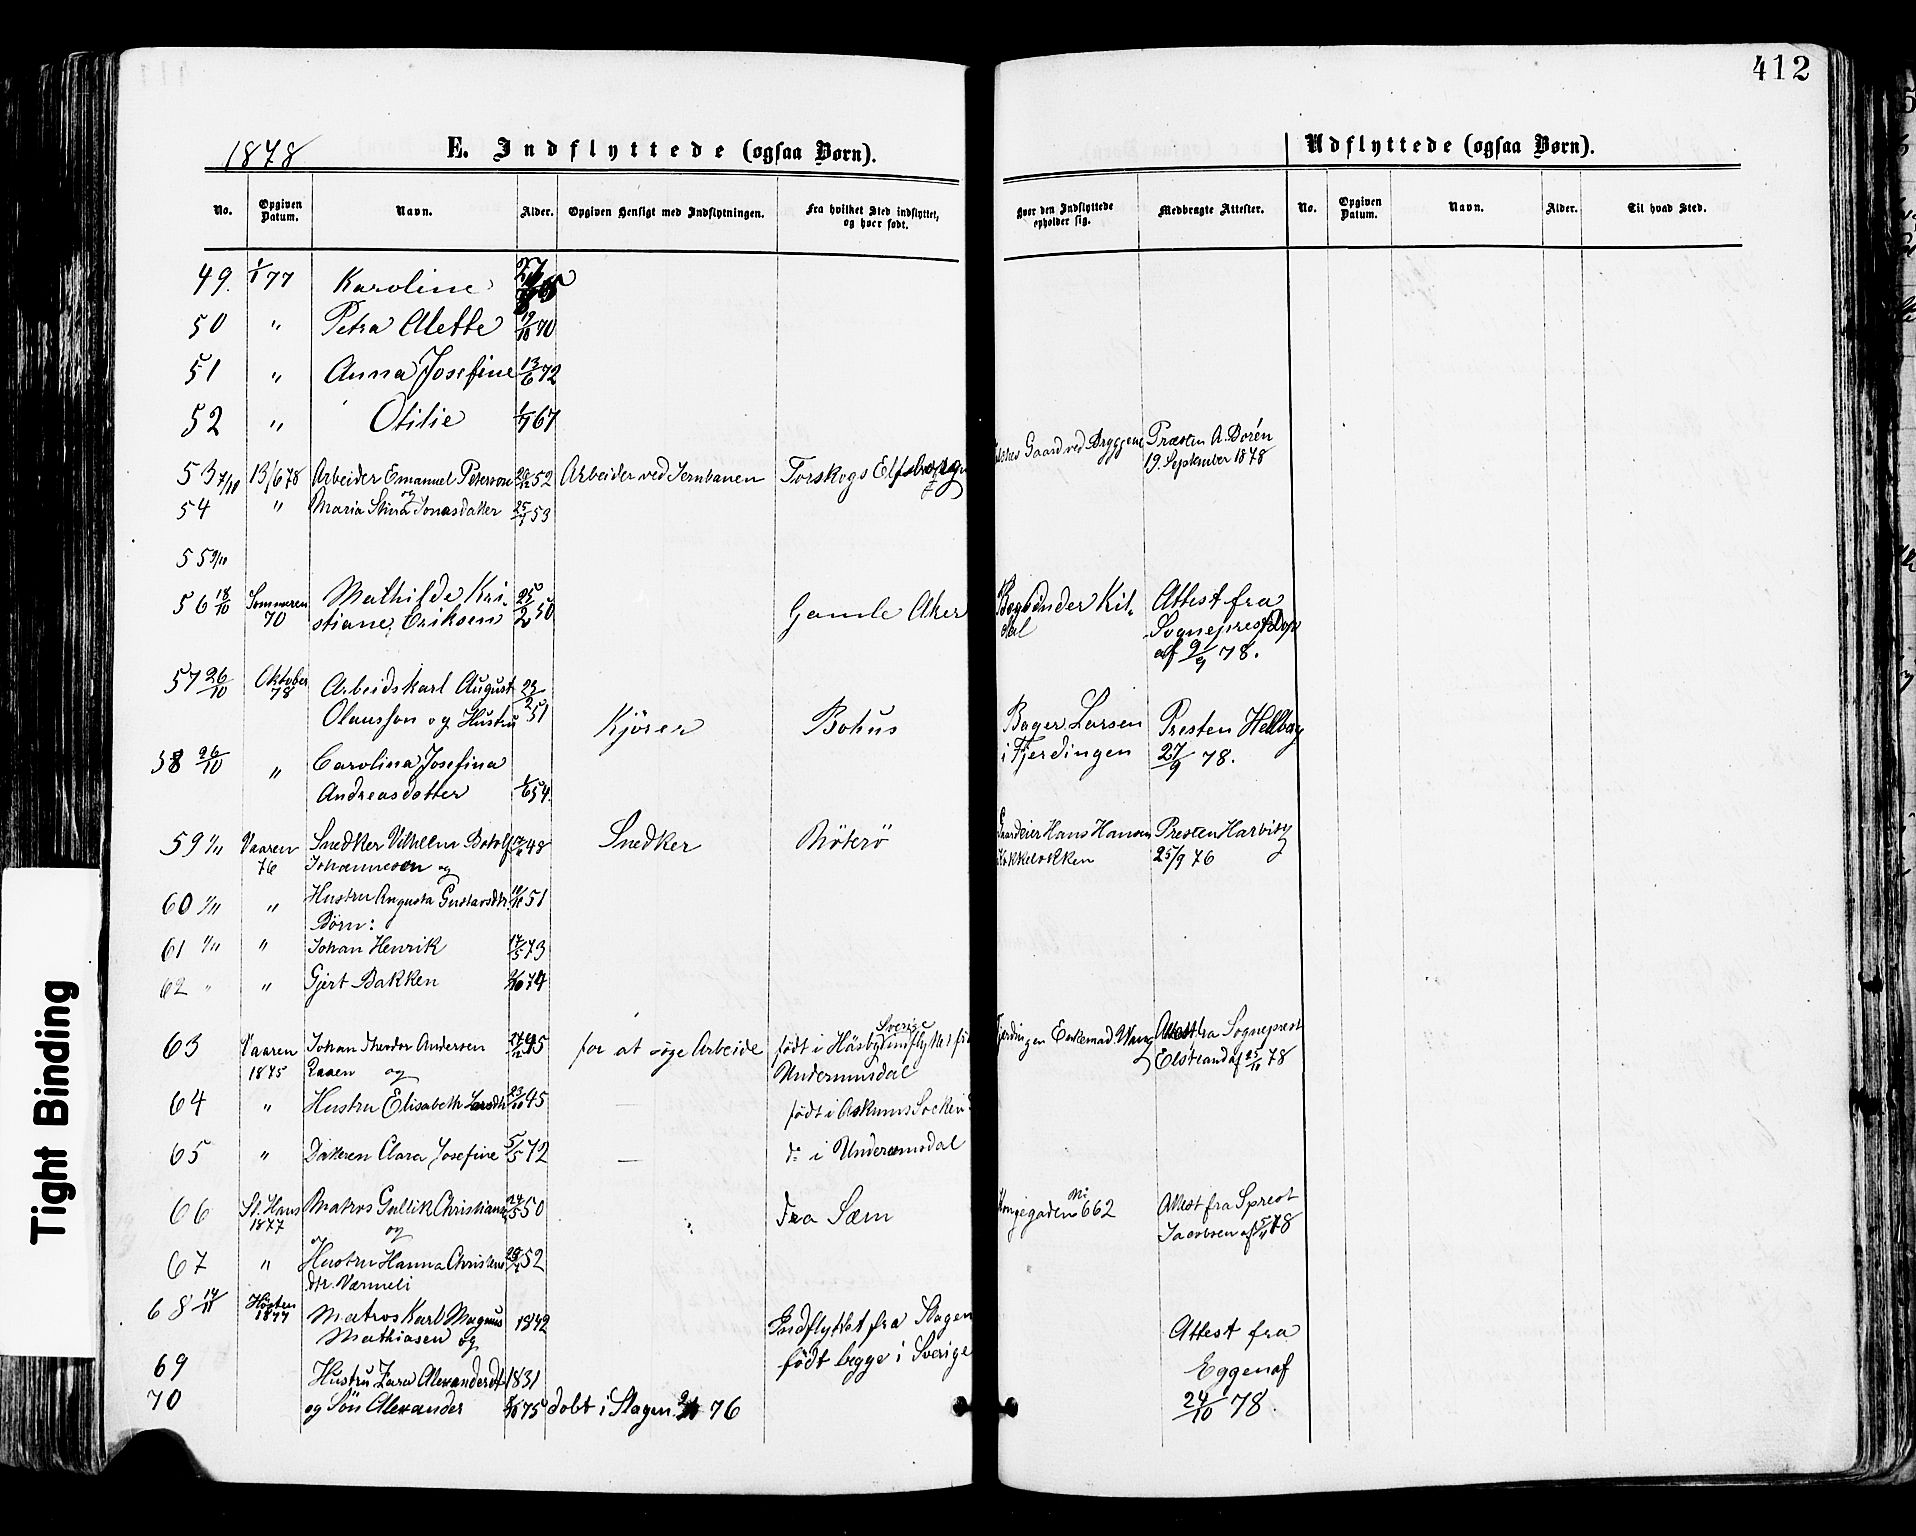 412
1878
E. Indflyttede (ogsaa Børn).
Udflyttede (ogsaa Børn).
No. Opgiven Datum. Navn. Alder. Opgiven Hensigt med Indflytningen. Fra hvilket Sted indflyttet, og hvor født. Hvor den Indflyttede opholder sig. Medbragte Attester. No. Opgiven Datum. Navn. Alder. Til hvad Sted.
49. 1/1 77 Karoline
50 " Petra Alette 19/10 70
51 " Anna Josefine 13/6 72
52 " Otilie 1/7 67
53 7/10 13/6 78 Arbeider Emanuel Peterson 52 Arbeider ved Jernbanen Torskogs Elfsborgs Gaard ved Bryggene Præsten A. Dorén
19. September 1878
54 " og Maria Stina Jonasdatter 25/7 53
55 9/10
56 18/10 Sommeren 70 Mathilde Kri-
stiane Eriksen 25/2 50 Gamle Aker Kil-
dal Attest fra
Sogneprest
af 9/9 78.
57 26/10 Oktober 78 Arbeidskarl August
Olausson og Hustru 23/2 51 Kjører Bohus Bager Larsen
i Fjerdingen Presten Hellbag
27/9 78.
58 26/10 " Carolina Josefina
Andreasdotter 1/6 54.
59 1/11 Vaaren 76 Snedker Vilhelm Botolf
Johannesen og 48 Snedker Nøterø Gaardeier Hans Hansen
Presten Harbitz
25/9 76
60 1/11 " Hustru Augusta Gustavsdtr. 51
Børn:
61 1/11 " Johan Henrik 17/5 73
62 " " Gjert Bakken 74
63 Vaaren 1875 Johan Theodor Andersen
og 45 for at søge Arbeide født i Håsby Sverige indflyttet fra
Undermunsdal Fjerdingen Enkemad. Attest fra Sogneprest
Elstrand af 25/10 78
64 " Hustru Elisabeth Larsdtr 23/10 45 — født i Askums Socken
65 " Datteren Clara Josefine 5/5 72 — do i Underemsdal
66 St. Hans 1877 Matros Gullik Christians
og 24/5 50 " fra Sæm Kongegaden No 662 Attest fra Sprest
Jacobsen af 78
67 " Hustru Hanna Christens
dtr. Værmeli 52
68 14/11 Høsten 1877 Matros Karl Magnus
Mathiasen og 1842 Indflyttet fra Slagen
født begge i Sverige Attest fra
Eggen af
24/10 78.
69 Hustru Zara Alexanderdtr 1831
70 og Søn Alexander 75 døbt i Slagen 76
Tight Binding